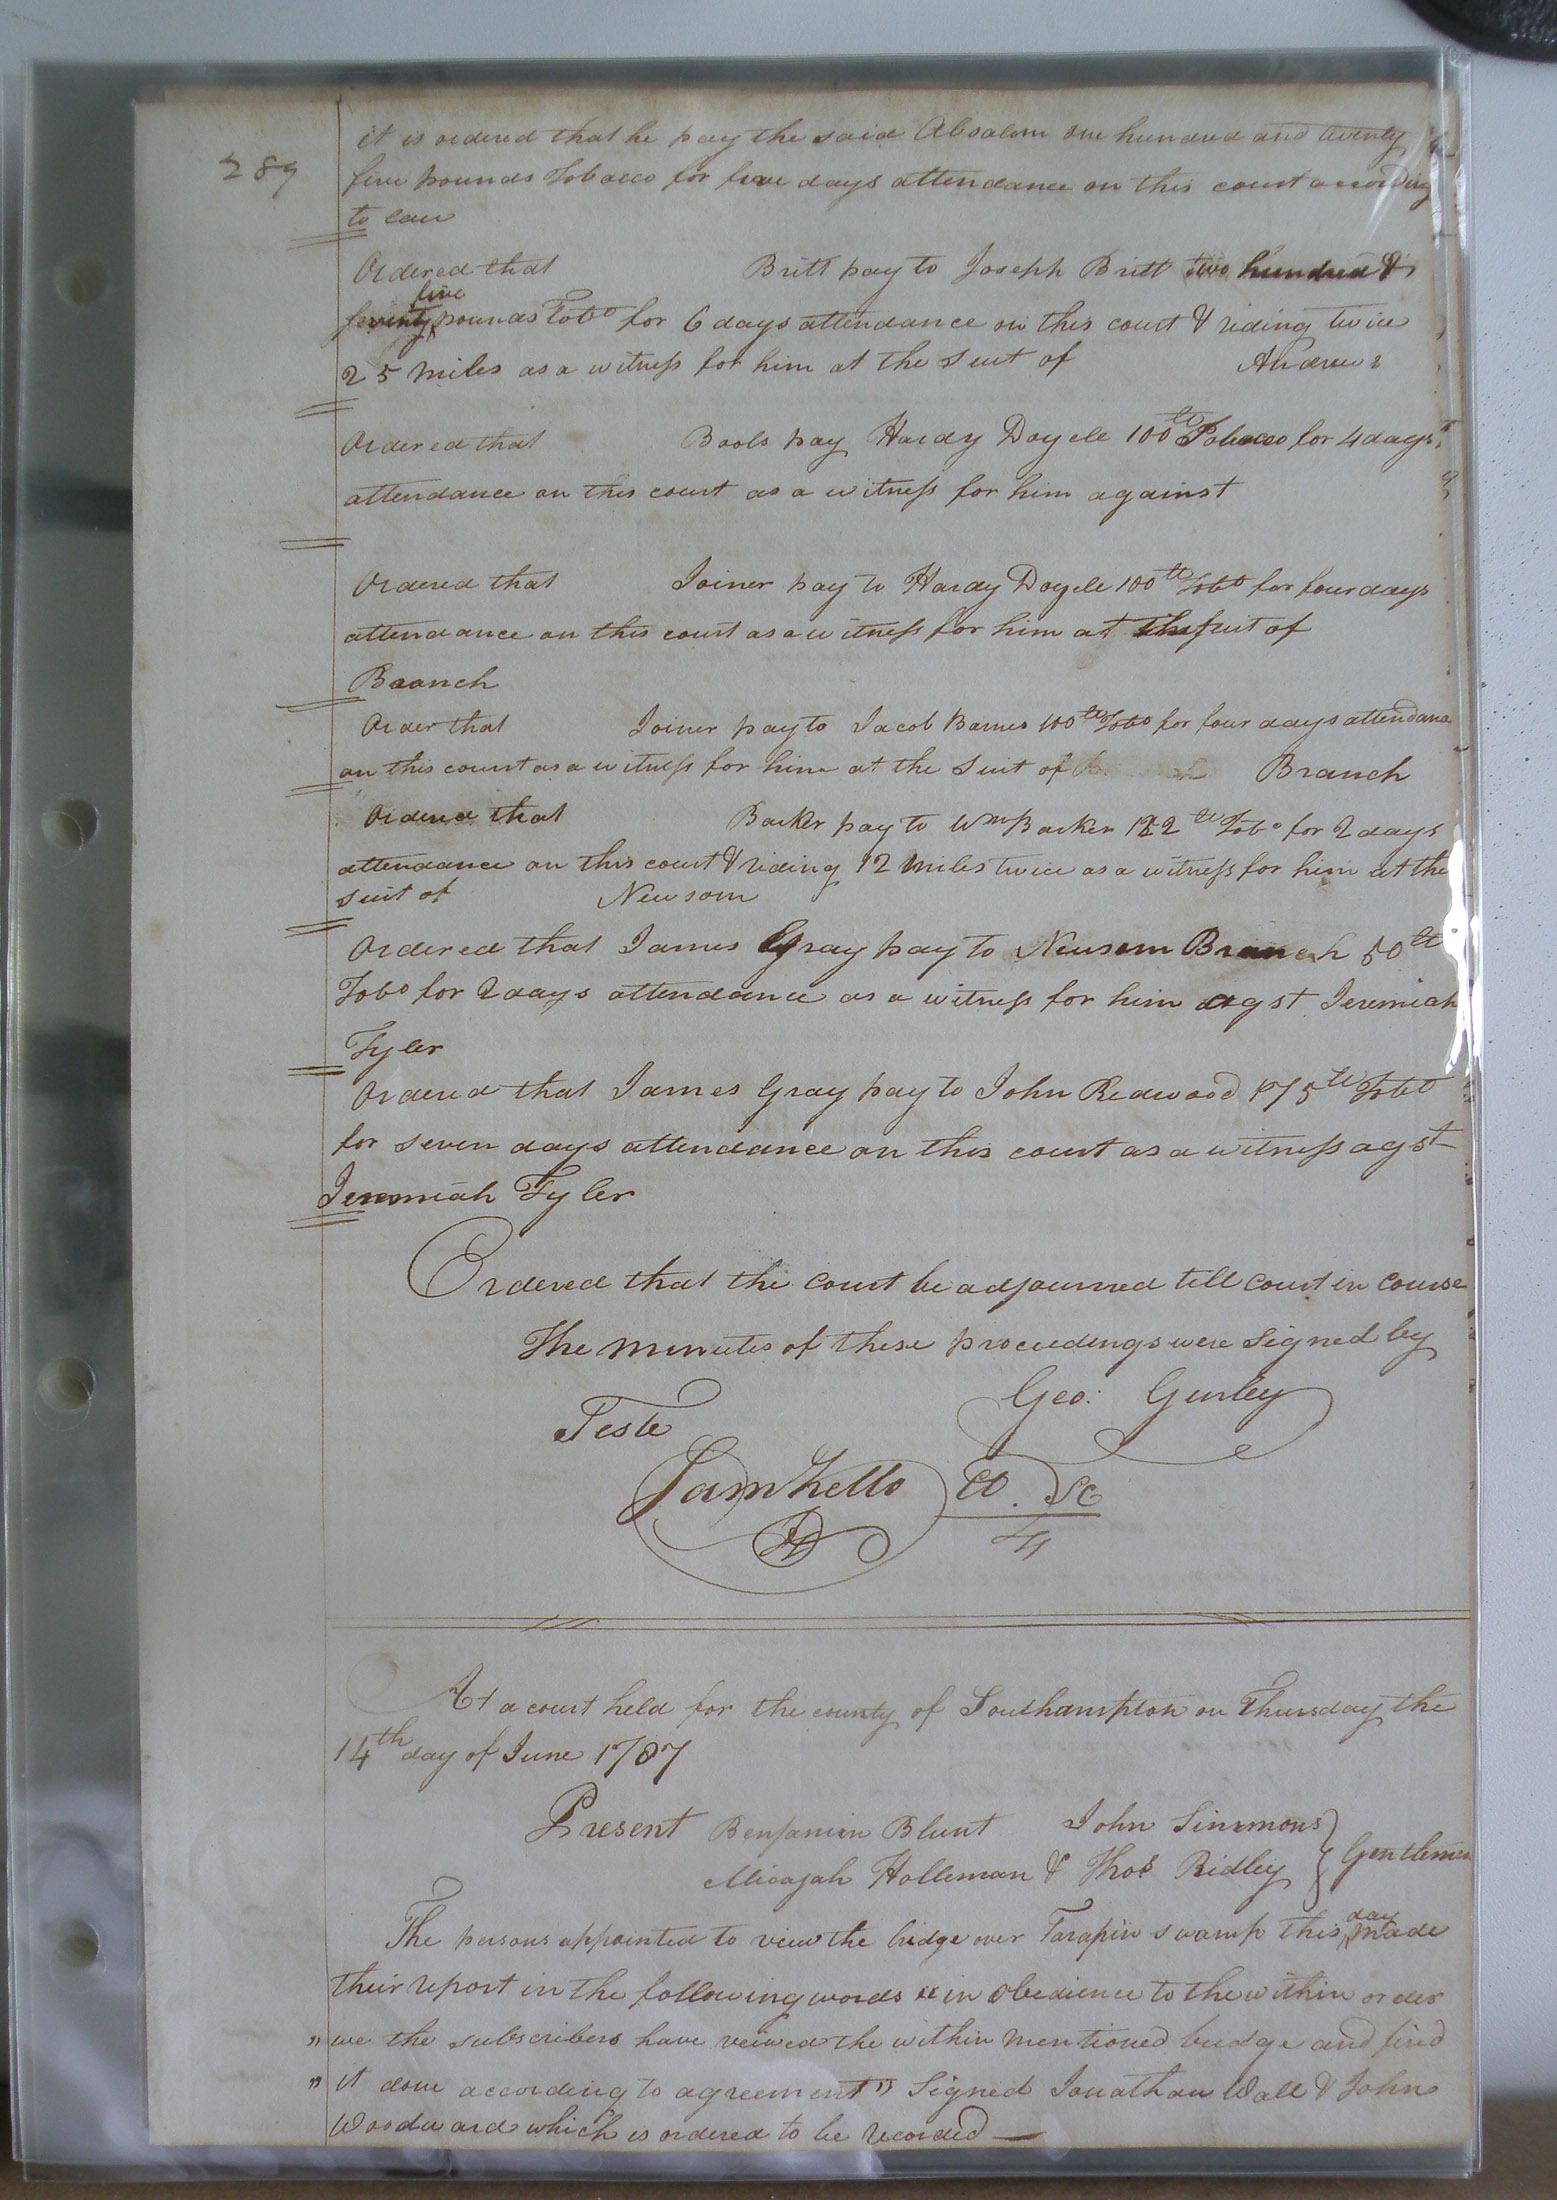 289
it is ordered that he pay the said Absalom one hundred and twenty
five pounds Tobacco for five days attendance on this court according
to law
Ordered that Britt pay to Joseph Britt two hundred &
five
seventy pounds Tobo for 6 days attendance on this court & riding twice
25 miles as a witness for him at the Suit of Andrews
Ordered that Bools pay Hardy Doyele 100 tt Tobacco for 4 days
attendance on this court as a witness for him against
Ordered that Joiner pay to Hardy Doyele 100 tt Tobo for four days
attendance on this court as a witness for him at the suit of
Branch
Order that Joiner pay to Jacob Barnes 100 tt Tobo for four days attendance
on this court as a witness for him at the Suit of Branch
Ordered that Barker pay to Wm Barker 122 tt Tobo for 2 days
attendance on this court & riding 12 miles twice as a witness for him at the
suit of Newsom
Ordered that James Gray pay to Newsom Branch 50 tt
Tobo for 2 days attendance as a witness for him agst Jeremiah
Tyler
Ordered that James Gray pay to John Redwood 175 tt Tobo
for seven days attendance on this court as a witness agst
Jeremiah Tyler
Ordered that the court be adjourned till court in course
The minutes of these proceedings were signed by
Geo: Gurley
Teste
Sam Kello
At a court held for the county of Southampton on Thursday the
14th day of June 1787
Present Benjamin Blunt John Simmons
Micajah Holleman & Thos Ridley Gentlemen
day
The persons appointed to view the bridge over Tarapin swamp this made
their report in the following words "in obedience to the within order
" we the subscribers have veiwed the within mentioned bridge and find
" it done according to agreement" Signed Jonathan Wall & John
Woodward which is ordered to be recorded —